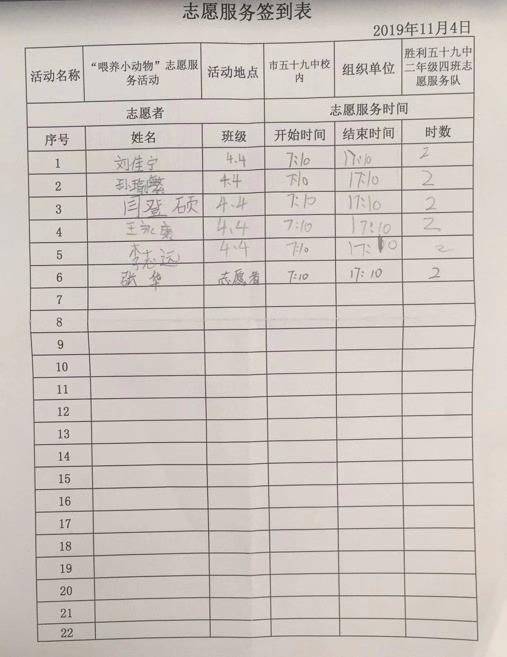 志愿服务签到表
2019年11月4日
活动名称 “喂养小动物”志愿服务活动 活动地点 市五十九中校内 组织单位 胜利五十九中二年级四班志愿服务队
志愿者 志愿服务时间
序号 姓名 班级 开始时间 结束时间 时数
1 刘佳宁 4.4 7:10 17:10 2
2 4.4 7:10 17:10 2
3 闫登硕 4.4 7:10 17:10 2
4 王永康 4.4 7:10 17:10 2
5 李志远 4.4 7:10 17:10 2
6 张华 志愿者 7:10 17:10 2
7
8
9
10
11
12
13
14
15
16
17
18
19
20
21
22